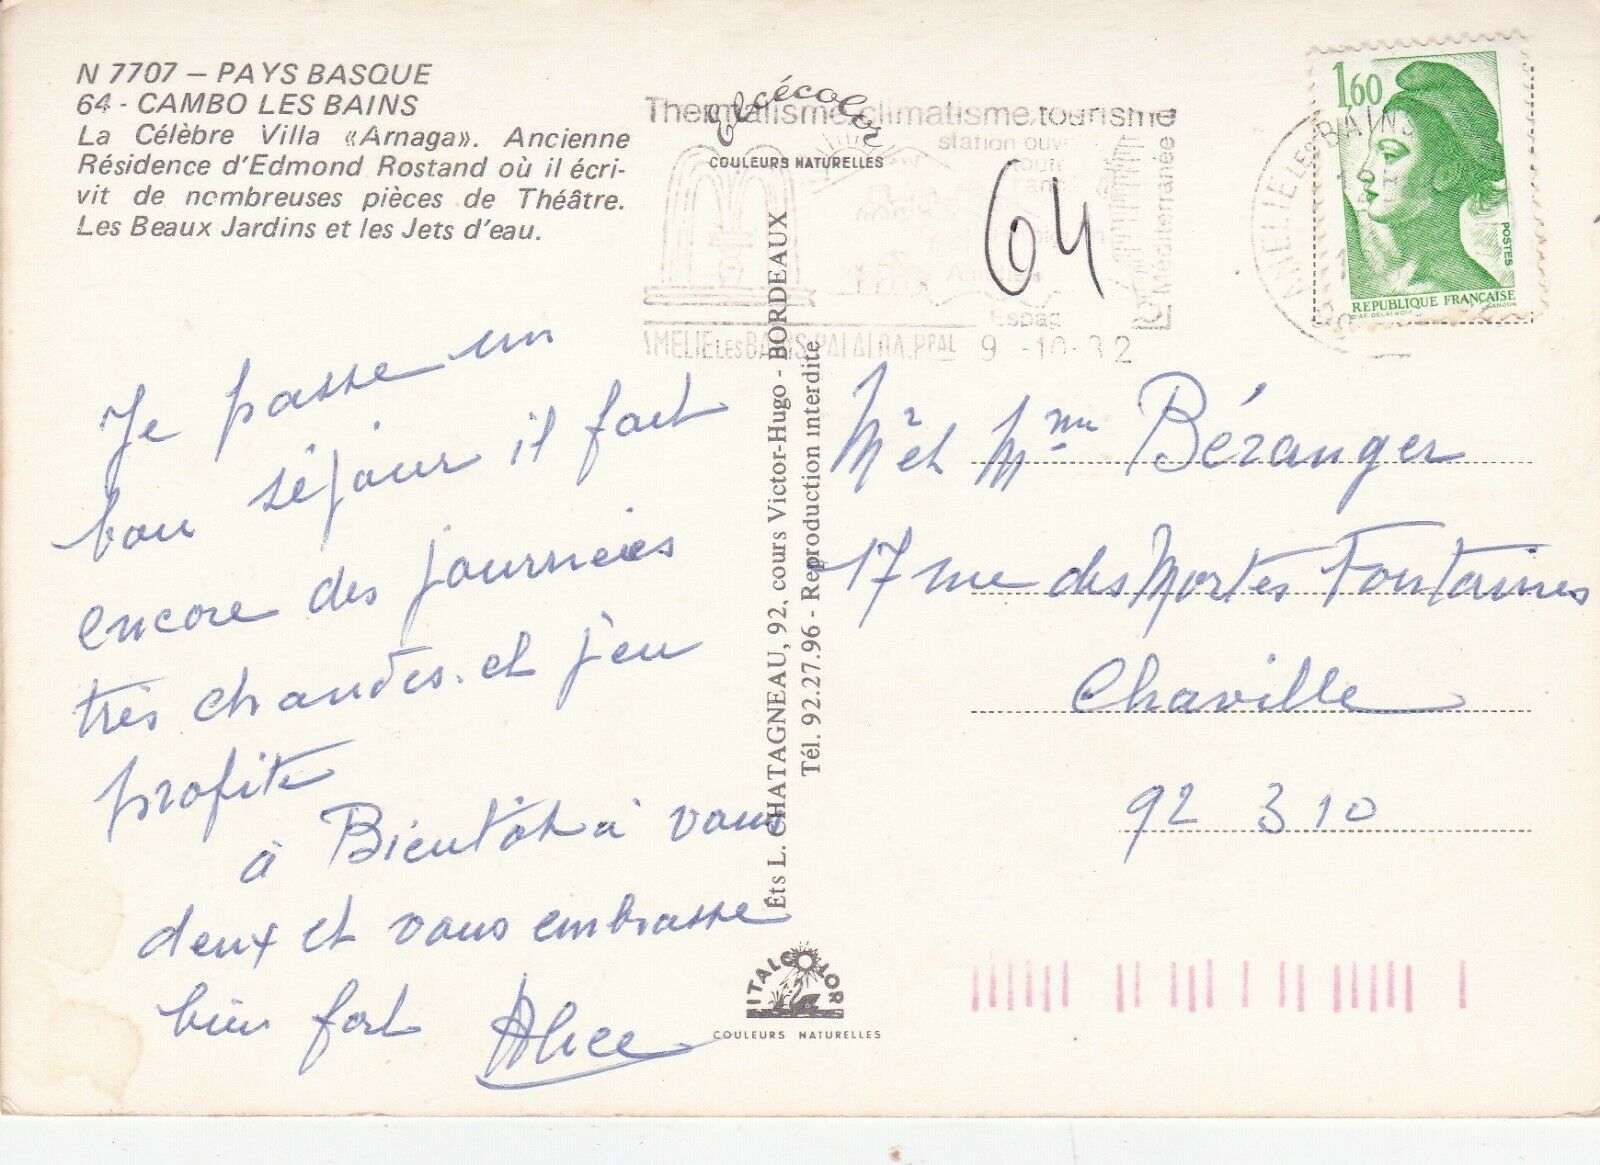 N 7707 – PAYS BASQUE
64 - CAMBO LES BAINS
La Célèbre Villa «Arnaga». Ancienne
Résidence d'Edmond Rostand où il écri-
vit de nombreuses pièces de Théâtre.
Les Beaux Jardins et les Jets d'eau.
Je passe un
bon séjour il fait
encore des journées
très chaudes. et j'en
profite
à Bientôt à vous
deux et vous embrasse
bien fort Alice
Elcécolor
COULEURS NATURELLES
Éts L. CHATAGNEAU, 92, cours Victor-Hugo - BORDEAUX
Tél. 92.27.96 - Reproduction interdite
ITALCOLOR
COULEURS NATURELLES
Thermalisme climatisme tourisme
station
Méditerranée
Espac
AMELIE LES BAINS PALALDA PPAL 9 -10-82
AMELIE LES BAINS
64
1,60
POSTES
REPUBLIQUE FRANÇAISE
Mr et Mme Béranger
17 rue des Mortes Fontaines
Chaville
92 310